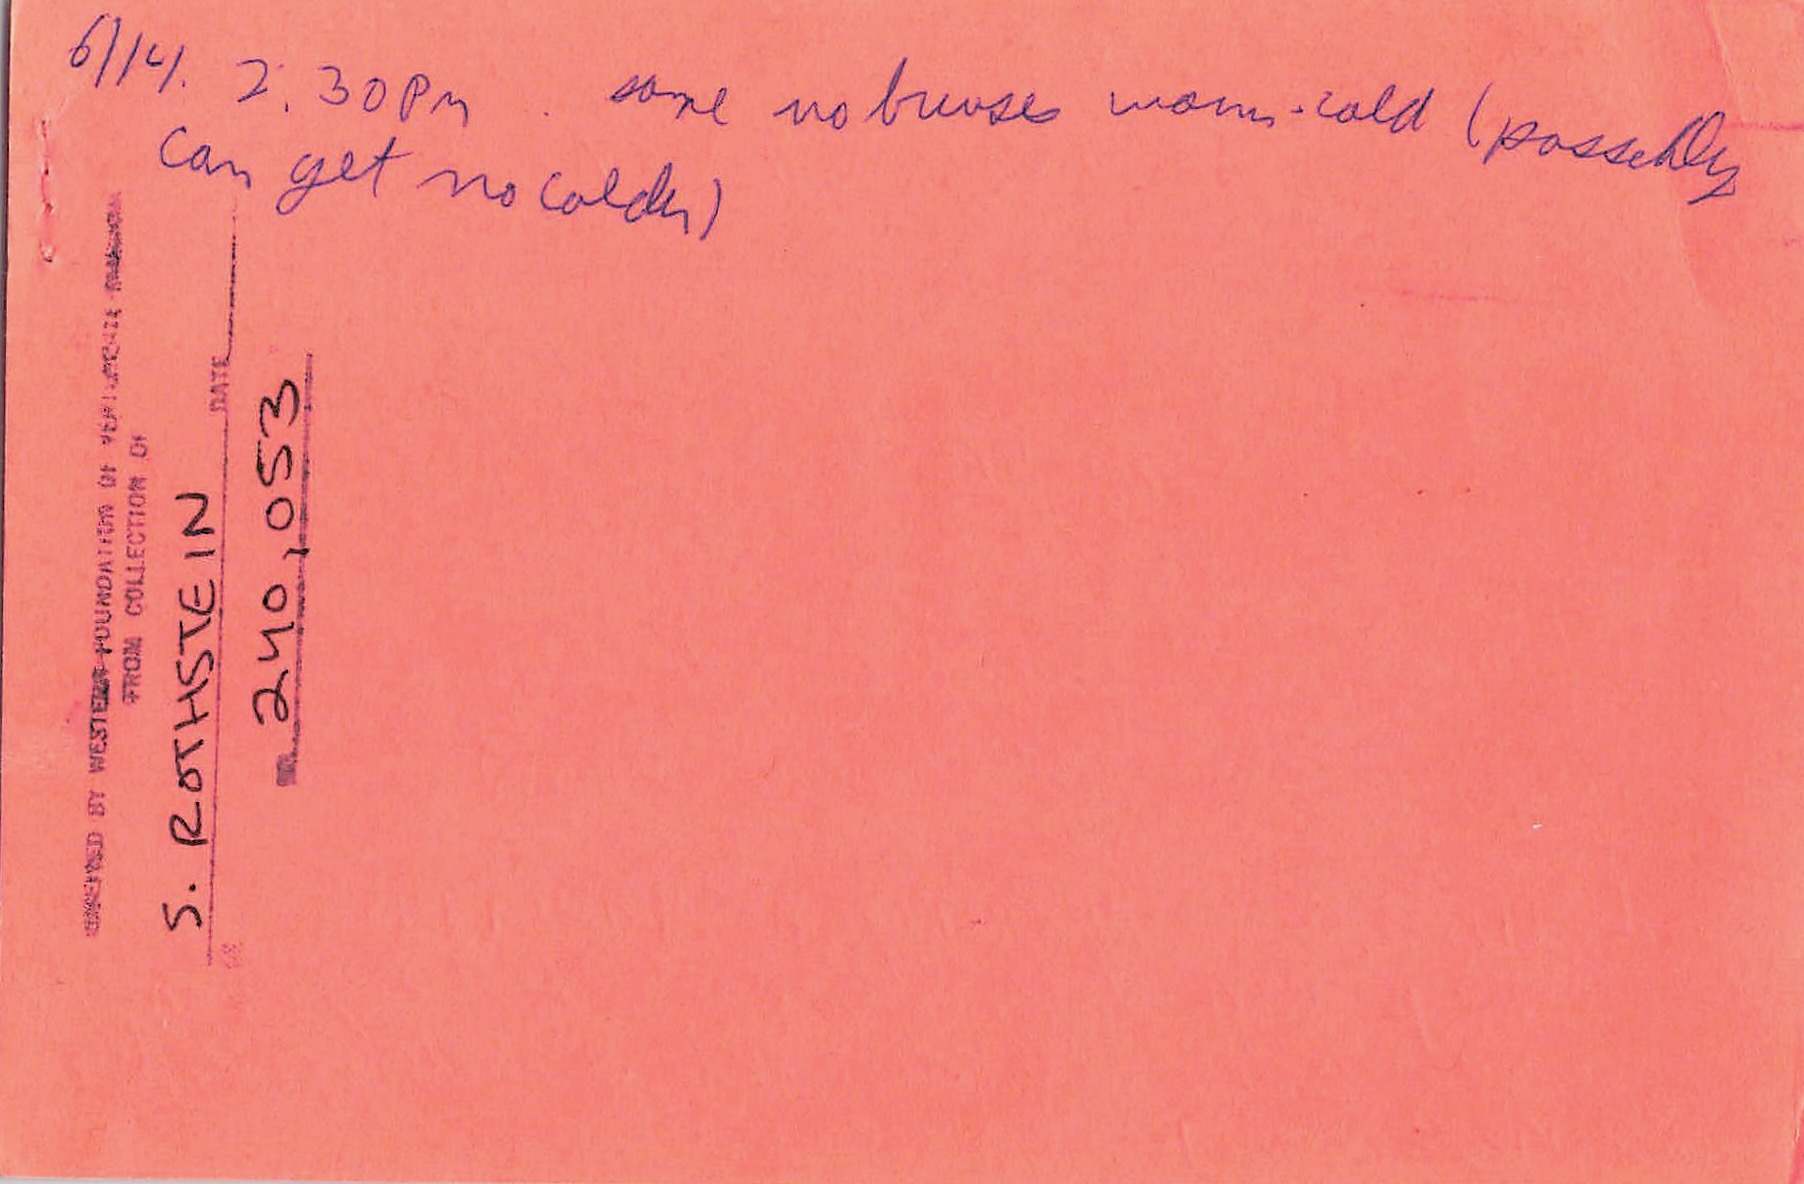 6/14. 2:30PM. same no bruises warm-cold (possibly
can get no colder)
RECEIVED BY WESTERN FOUNDATION OF VERTEBRATE ZOOLOGY
FROM COLLECTION OF
S. ROTHSTEIN DATE
240,053